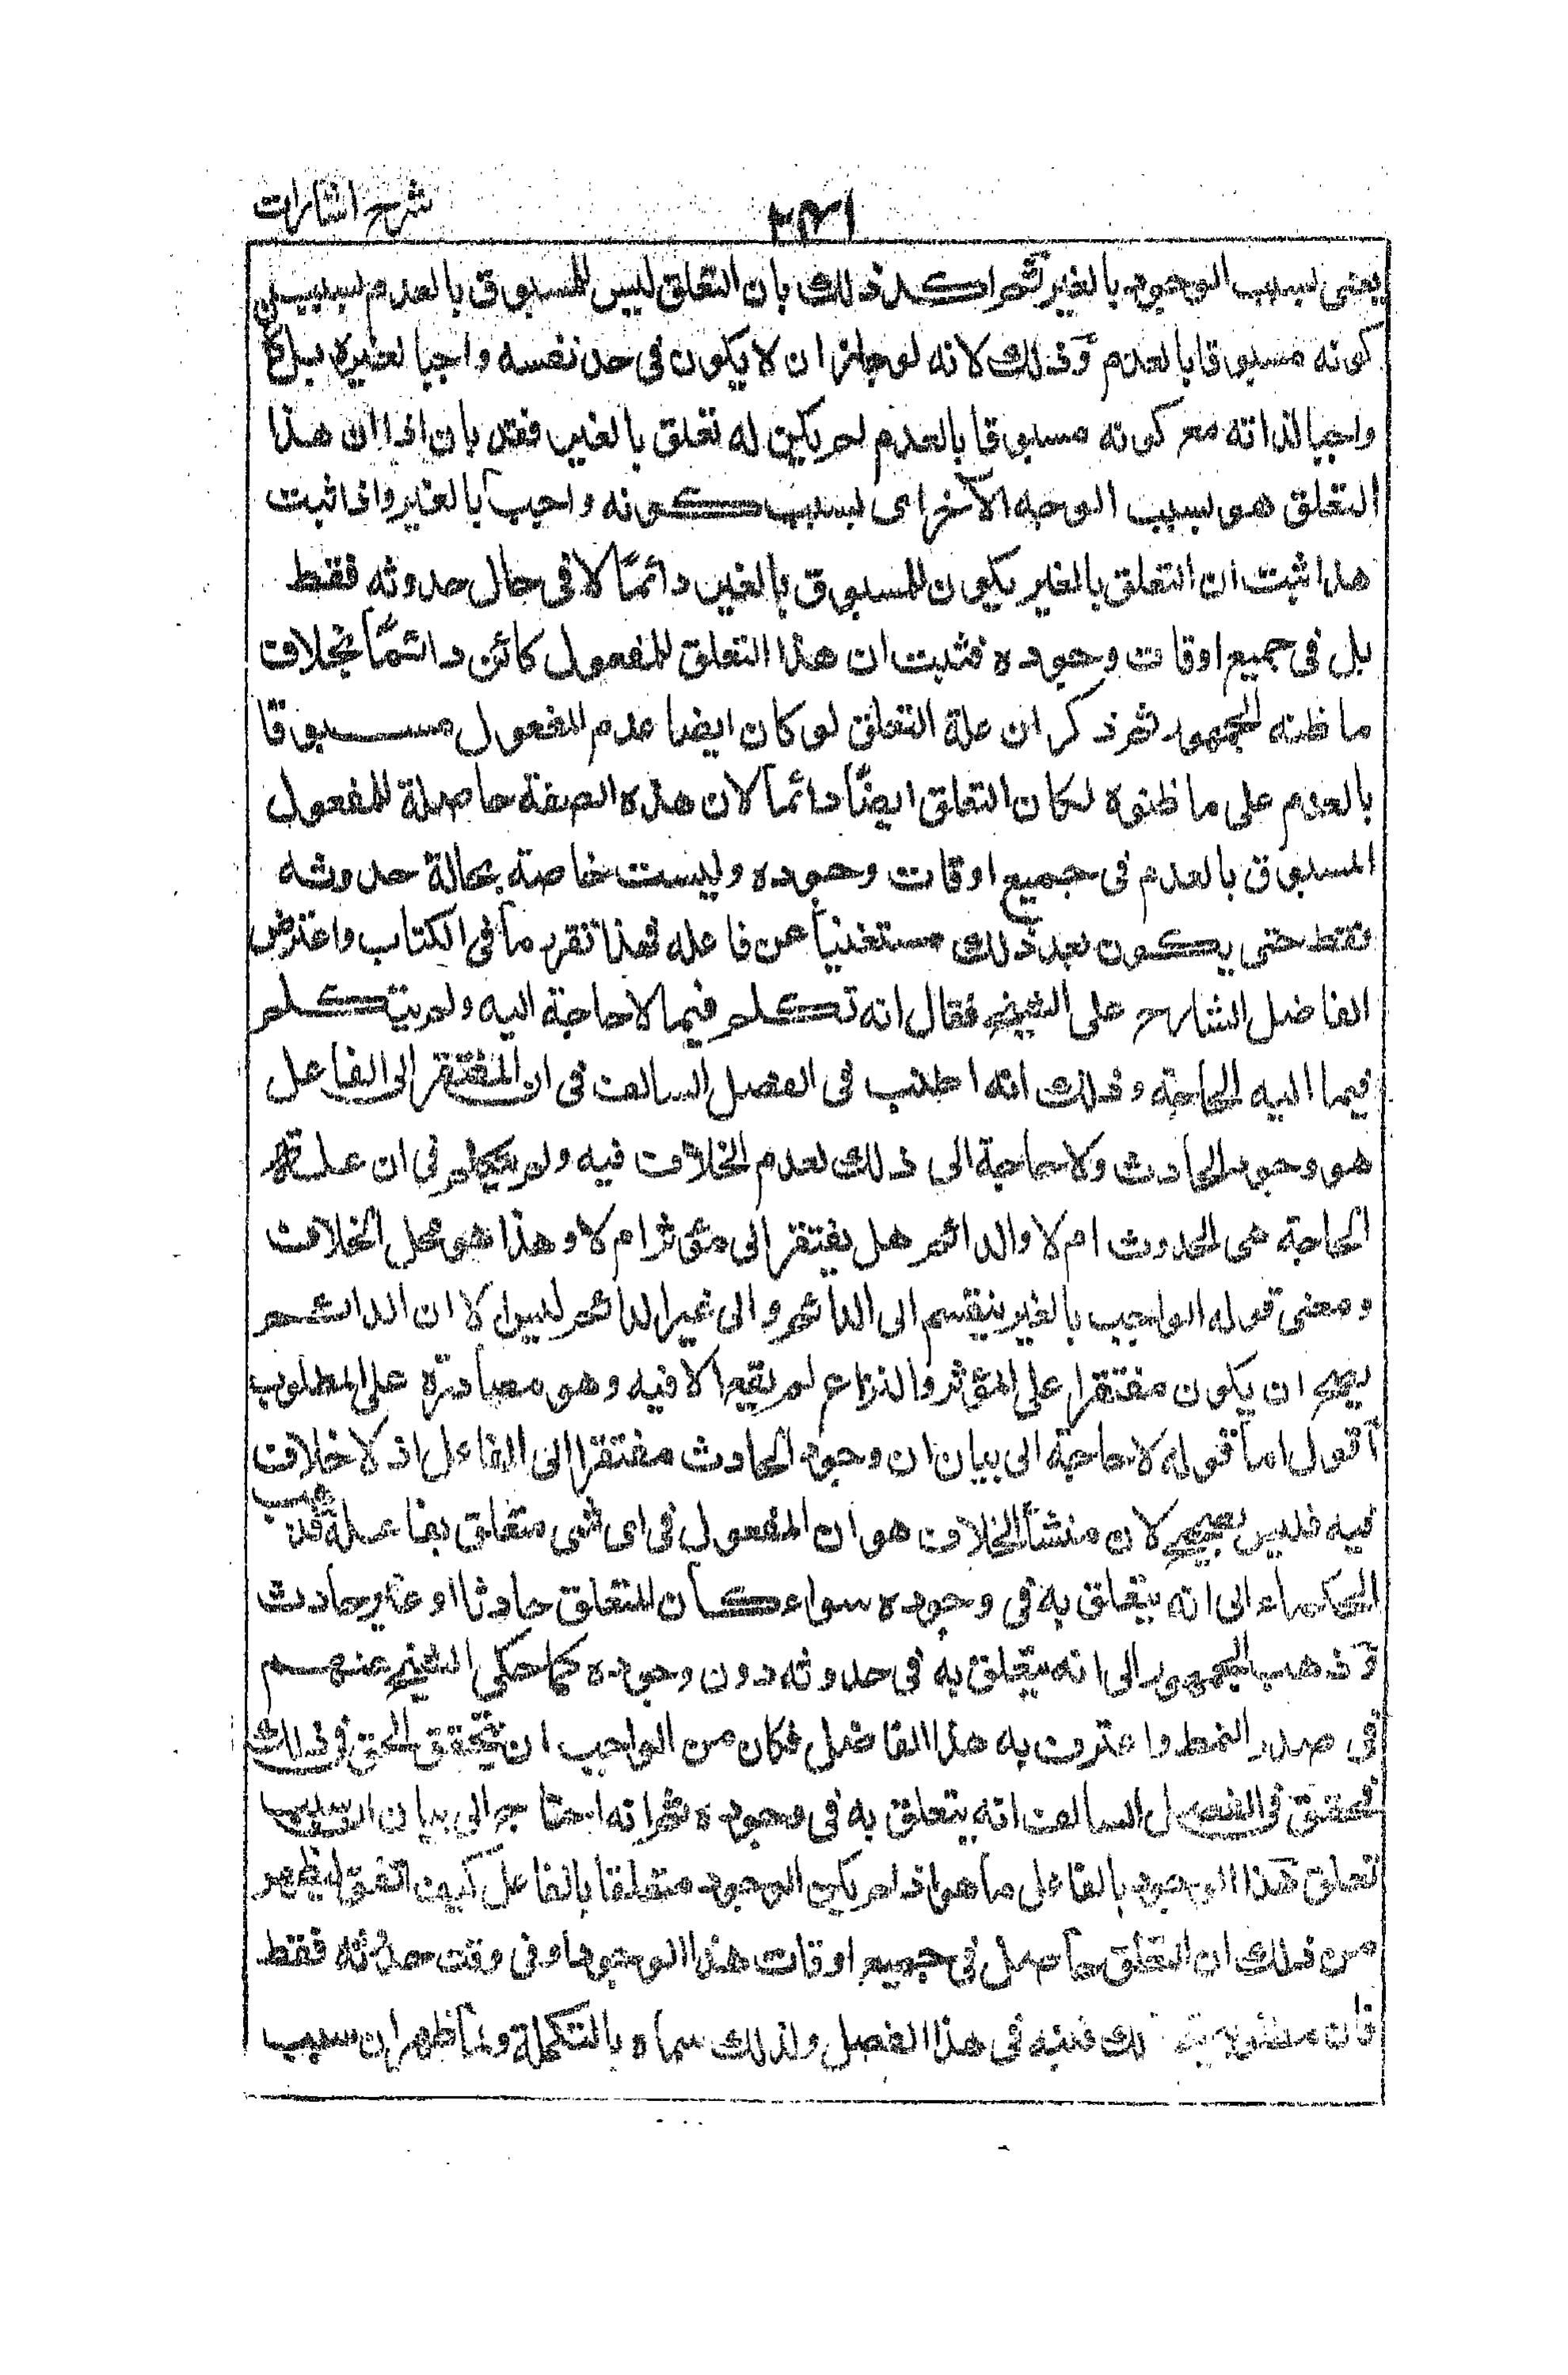 شرح اشارات
يعنى بسبب الوجوب بالغير ثم اكد ذلك بان التعلق ليس للمسبوق بالعدم بسبب
كونه مسبوقا بالعدم وذلك لانه لو جاز ان لا يكون فى حد نفسه واجبا لغيره بل
واجبا لذاته مع كونه مسبوقا بالعدم لم يكن له تعلق بالغير فقد بان اذا ان هذا
التعلق هو بسبب الوجه الآخر اى بسبب كونه واجبا بالغير واذا ثبت
هذا ثبت ان التعلق بالغير يكون للمسبوق بالغير دائما لا فى حال حدوثه فقط
بل فى جميع اوقات وجوده فثبت ان هذا التعلق للمفعول كائن دائما بخلاف
ما ظنه الجمهور ثم ذكر ان علة التعلق لو كان ايضا عدم المفعول مسبوقا
بالعدم على ما ظنوه لكان التعلق ايضا دائما لان هذه الصفة حاصلة للمفعول
المسبوق بالعدم فى جميع اوقات وجوده وليست خاصة بحالة حدوثه
فقط حتى يكون بعد ذلك مستغنيا عن فاعله فهذا تقرير ما فى الكتاب واعترض
الفاضل الشارح على الشيخ فقال انه تكلم فيما لا حاجة اليه ولم يتكلم
فيما اليه الحاجة وذلك انه اطنب فى الفصل السالف فى ان المفتقر الى الفاعل
هو وجود الحادث ولا حاجة الى ذلك لعدم الخلاف فيه ولم يتكلم فى ان علة
الحاجة هى الحدوث ام لا والدائم هل يفتقر الى مؤثر ام لا وهذا هو محل الخلاف
ومعنى قوله الواجب بالغير ينقسم الى الدائم والى غير الدائم ليس الا ان الدائم
يصح ان يكون مفتقرا على المؤثر والنزاع لم يقع الا فيه وهو مصادرة على المطلوب
اقول اما قوله لا حاجة الى بيان ان وجود الحادث مفتقرا الى الفاعل اذ لا خلاف
فيه فليس بصحيح لان منشأ الخلاف هو ان المفعول فى اى شى متعلق بفاعله فذهب
الحكماء الى انه يتعلق به فى وجوده سواء كان المتعلق حادثا او غير حادث
وذهب الجمهور الى انه يتعلق به فى حدوثه دون وجوده كما حكى الشيخ عنهم
فى صدر النمط واعترف به هذا الفاضل فكان من الواجب ان يتحقق الحق فى ذلك
فحقق فى الفصل السالف انه يتعلق به فى وجوده ثم انه احتاج الى بيان السبب
تعلق هذا الوجود بالفاعل ما هو اذ لم يكن الوجود متعلقا بالفاعل كيف اتفق ليظهر
من ذلك ان التعلق حاصل فى جميع اوقات هذا الوجود او فى وقت حدوثه فقط
فان ذلك فنبه فى هذا الفصل ولذلك سماه بالتكملة ولما ظهر ان سبب